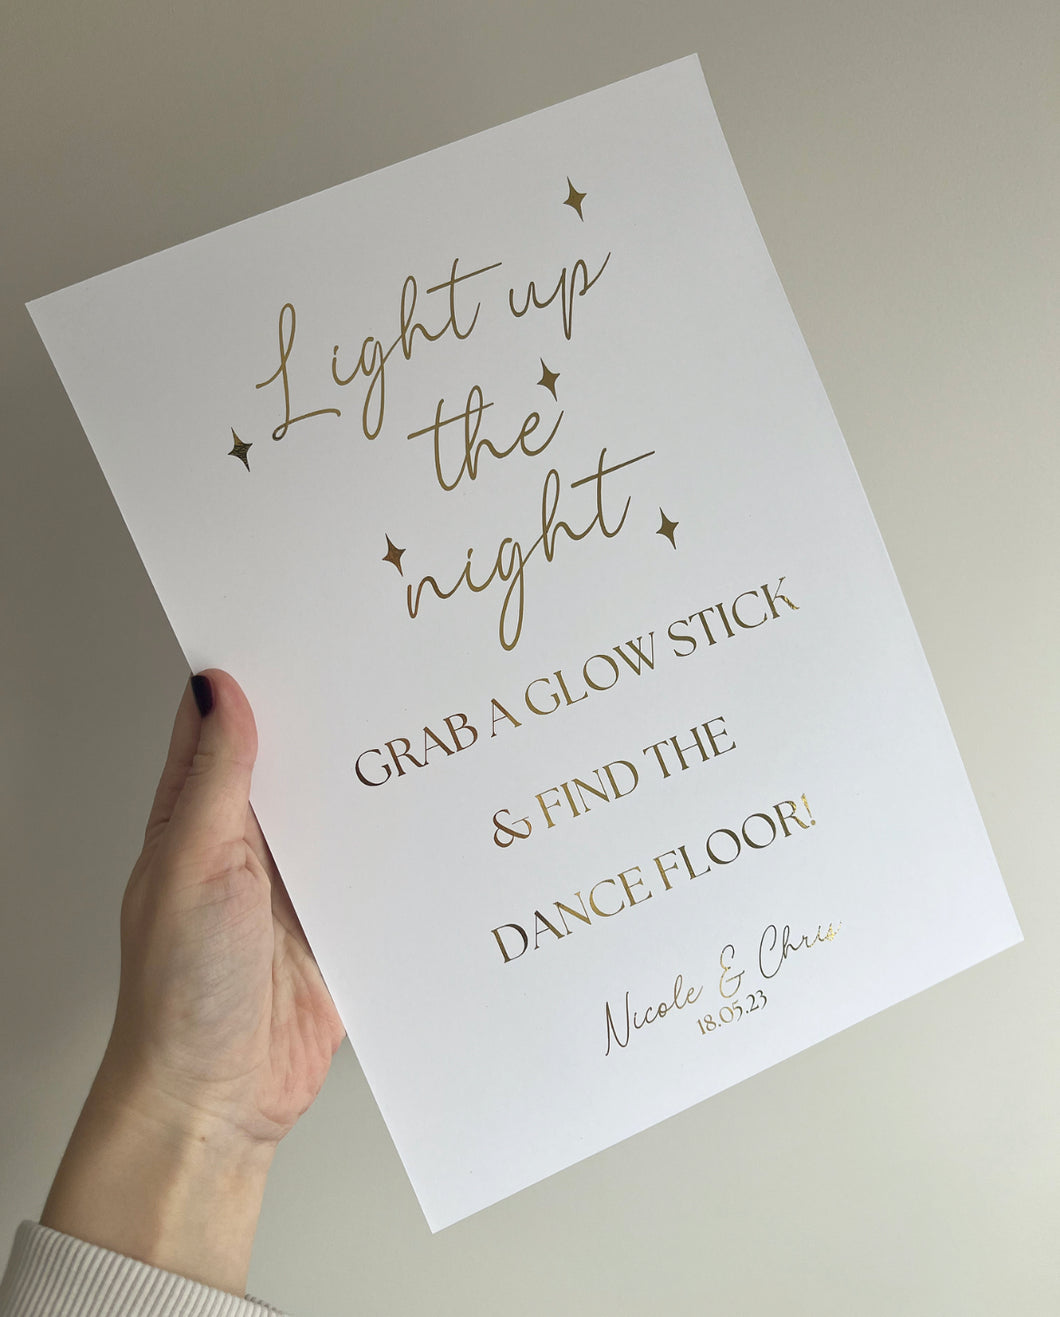 Light up
the
night
GRAB A GLOW STICK
& FIND THE
DANCE FLOOR!
Nicole & Chris
18.05.23